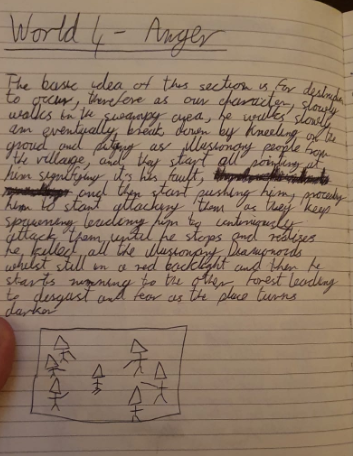 World 4 - Anger
The basic idea of this section is for destruction
to occur, therefore as our character, slowly
walks in the swampy area, he walks slowly
am eventually, break down by kneeling on the
groud and as illusionary people from
the village, and they start all pointing at
him signifying it's his fault,
and then start pushing him,
him to start attacking them as they keep
spawning leading him to continiously
attack them, until he stops and realizes
he killed all the illusionary
whilst still in a red backlight and then he
starts running to the other forest leading
to disgust and fear as the place turns
darker